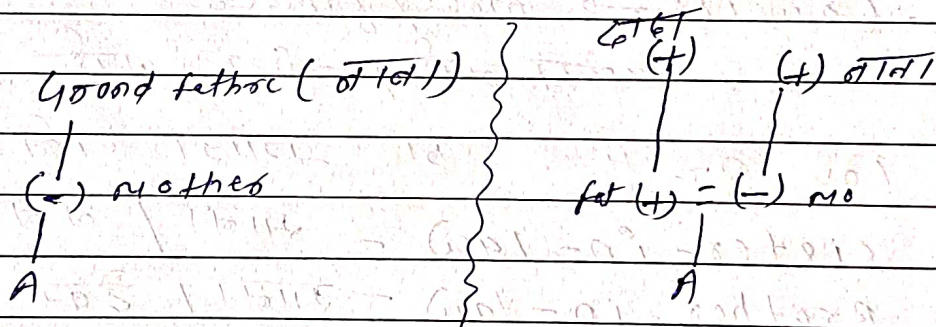 Grand father (नाना)
(-) Mother
A
दादा
(+) (+) नाना
fat (+) = (-) mo
A